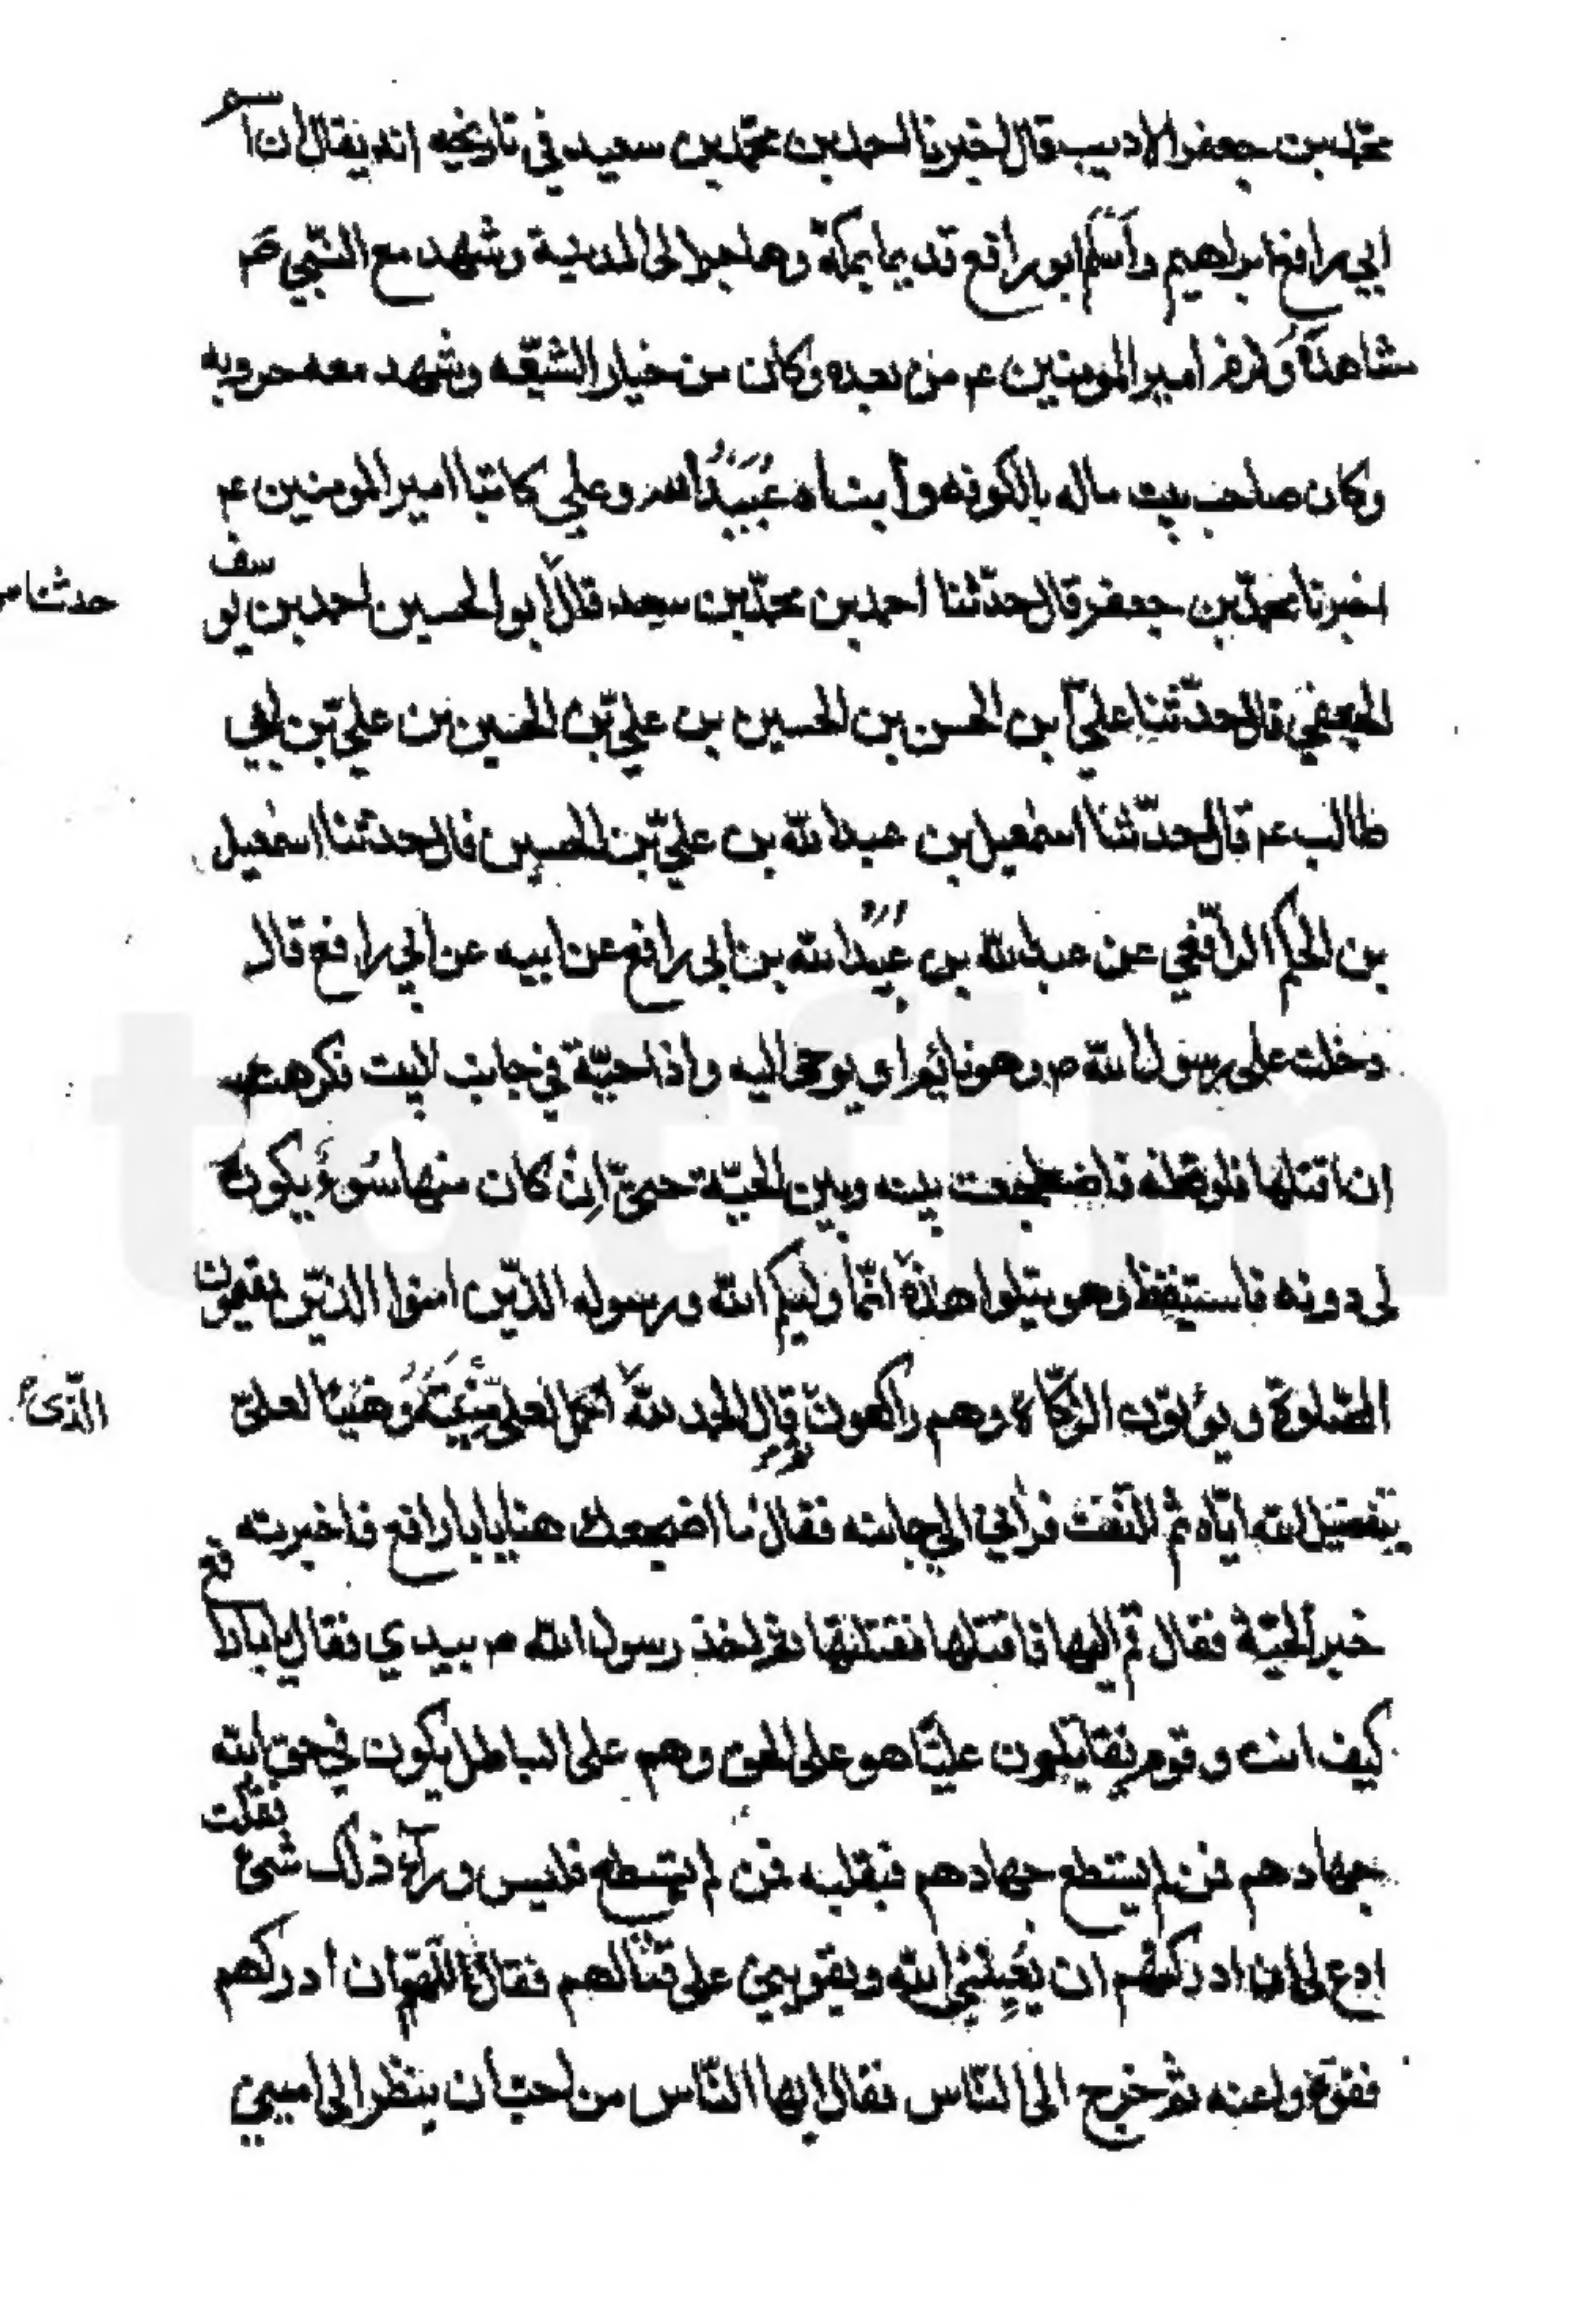 محمّد بن جعفر الاديب قال اخبرنا احمد بن محمّد بن سعيد في تاريخه انه يقال ان اسم
ابي رافع ابراهيم وأسلم ابو رافع قديما بمكة وهاجر الى المدينة وشهد مع النّبي صم
مشاهدة ولزم امير المومنين عم من بعده وكان من خيار الشيعه وشهد معه حروبه
وكان صاحب بيت ماله بالكوفه وابناه عُبَيدُ الله وعلي كاتبا امير المومنين عم
اخبرنا محمّد بن جعفر قال حدّثنا احمد بن محمّد بن سعيد قال ابو الحسين احمد بن يوسف
حدثنا
الجعفي قال حدّثنا عليّ بن الحسن بن الحسين بن عليّ بن الحسين بن عليّ بن ابي
طالب عم قال حدّثنا اسمعيل بن عبد الله بن عليّ بن الحسين قال حدثنا اسمعيل
بن الحكم الرّافعي عن عبد الله بن عُبَيد الله بن ابي رافع عن ابيه عن ابي رافع قال
دخلت على رسول الله ص وهو نائم او يوحى اليه واذا حيّة في جانب البيت فكرهت
ان اقتلها فاوقظه فاضطجعت بينه وبين الحيّة حتىّ اِن كان منها سُوءٌ يكون
لى دونه فاستيقظ وهو يتلوا هذه انّما وليكم الله ورسوله الذّين امنوا الذّين يقيمون
الصّلوة ويؤتون الزّكاة وهم راكعون قال الحمد لله اكمل لعلي مُنِيتَهُ وَهنيئا لعليّ
الّذى
بتفضيل الله ايّاه ثم التفت فرأني الى جانبه فقال ما اضجعك هنا يا با رافع فاخبرته
خبر الحيّة فقال قم اليها فاقتلها فقتلتها ثم اخذ رسول الله ص بيدي فقال يا با رافع
كيف انت وقوم يقاتلون عليّا هو على الحق وهم على الباطل يكون في حق الله
جهادهم فمن لم يستطع جهادهم فبقلبه فمن لم يستطع فليس ورآء ذلك شئ فقلت
ادع لي ان ادركتهم ان يُعِينَنِي الله ويقويني على قتالهم فقال اللّهمّ ان ادركهم
فقوّه واعنه ثم خرج الى النّاس فقال ايها النّاس من احبّ ان ينظر الى اميني